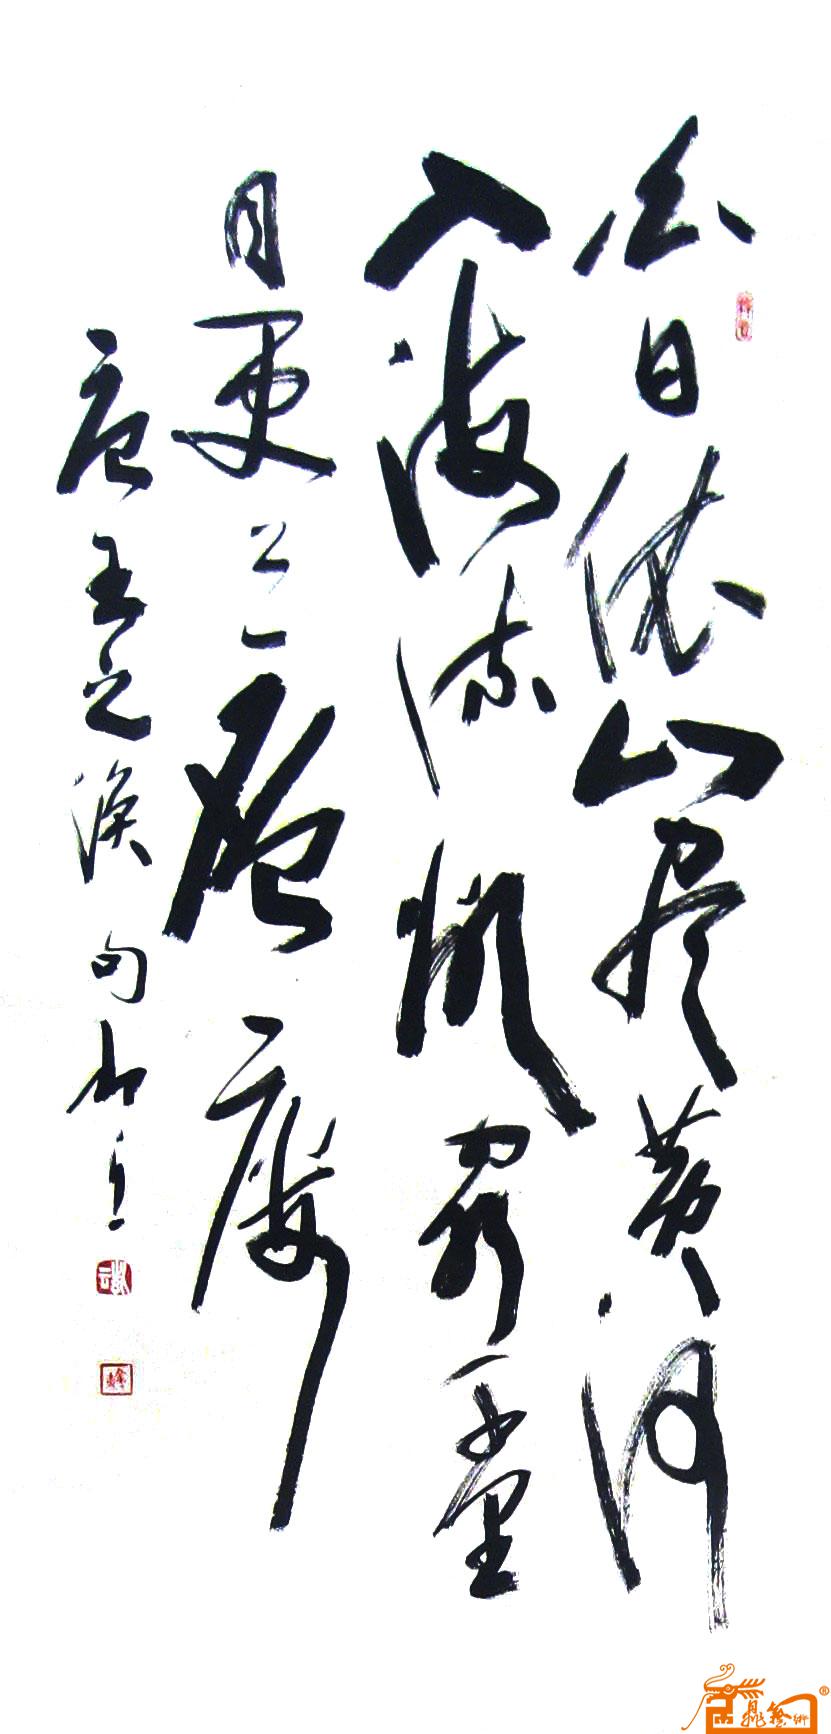 白日依山尽黄河
入海流欲穷千里
目更上一层楼
唐王之涣句